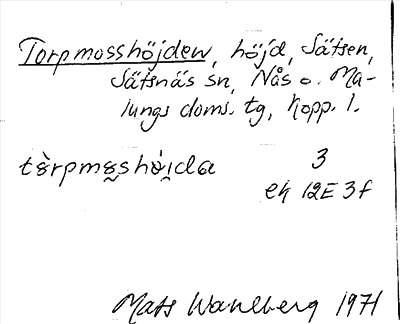 Torpmosshöjden, höjd, Sätsen,
Sätsnäs sn, Nås o. Ma-
lungs doms. tg, Kopp. l.
tɞ̀rpmɞ̯shɵ́i̯da 3
ek 12E 3f
Mats Wahlberg 1971